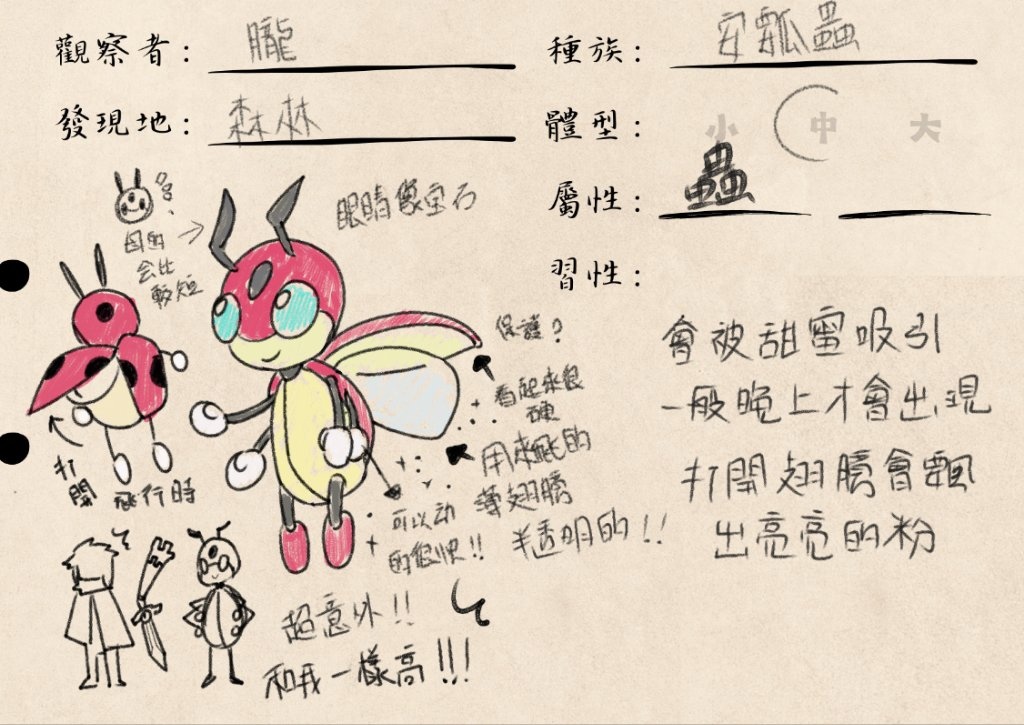 觀察者: 朧
種族: 安瓢蟲
發現地: 森林
體型: 小 中 大
屬性: 蟲
習性:
會被甜蜜吸引
一般晚上才會出現
打開翅膀會飄
出亮亮的粉
母的
会比
較短
眼睛像宝石
保護?
看起來很
硬
用來飛的
薄翅膀
半透明的!!
可以动
的很快!!
打
開
飛行時
超意外!!
和我一樣高!!!